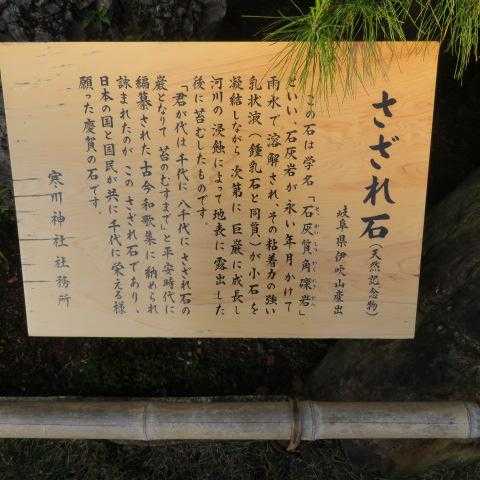 さざれ石(天然記念物)
岐阜県伊吹山産出
この石は学名「石灰質角礫岩」
せっかいしつかくれきがん
といい、石灰岩が永い年月かけて
雨水で溶解され、その粘着力の強い
乳状液(鍾乳石と同質)が小石を
凝結しながら次第に巨巌に成長し
河川の浸蝕によって地表に露出した
後に苔むしたものです。
「君が代は千代に八千代にさざれ石の
巌となりて苔のむすまで」と平安時代に
編纂された古今和歌集に納められ
詠まれたのがこのさざれ石であり、
日本の国と国民が共に千代に栄える様
願った慶賀の石です。
寒川神社社務所